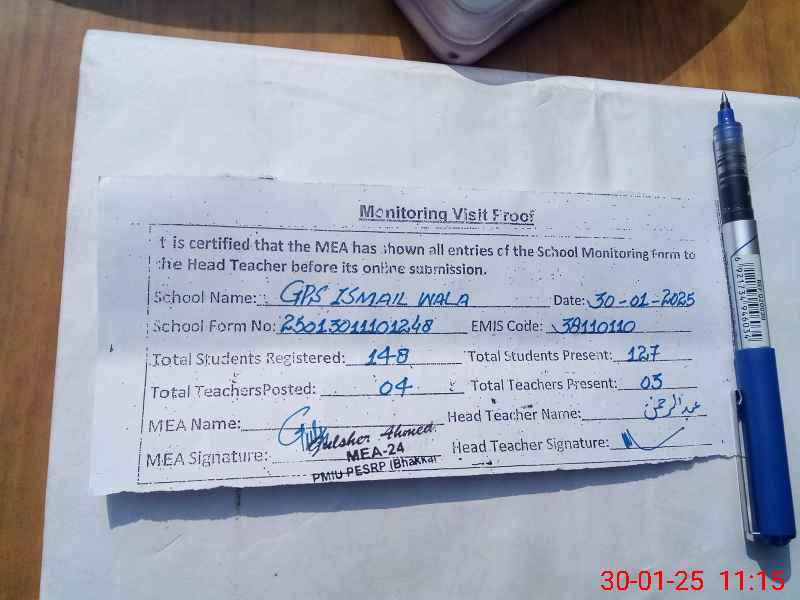 Monitoring Visit Proof
t is certified that the MEA has shown all entries of the School Monitoring form to
the Head Teacher before its online submission.
School Name: GPS ISMAIL WALA Date: 30-01-2025
School Form No: 25013011101248 EMIS Code: 38110110
Total Students Registered: 148 Total Students Present: 127
Total TeachersPosted: 04 Total Teachers Present: 03
MEA Name: Head Teacher Name: عبدالرحمن
MEA Signature: Gulsher Ahmed. Head Teacher Signature:
MEA-24
PMIU PESRP (Bhakkar
30-01-25 11:15